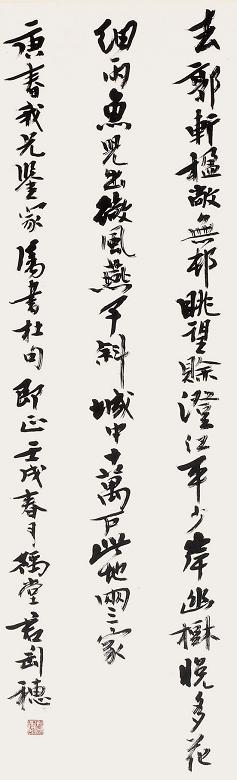 去郭軒楹敞無邨眺望賒澄江平少岸幽樹晚多花
細雨魚兒出微風燕子斜城中十萬戶此地兩三家
春我兄鑒家屬書杜句即正壬戌春月堂